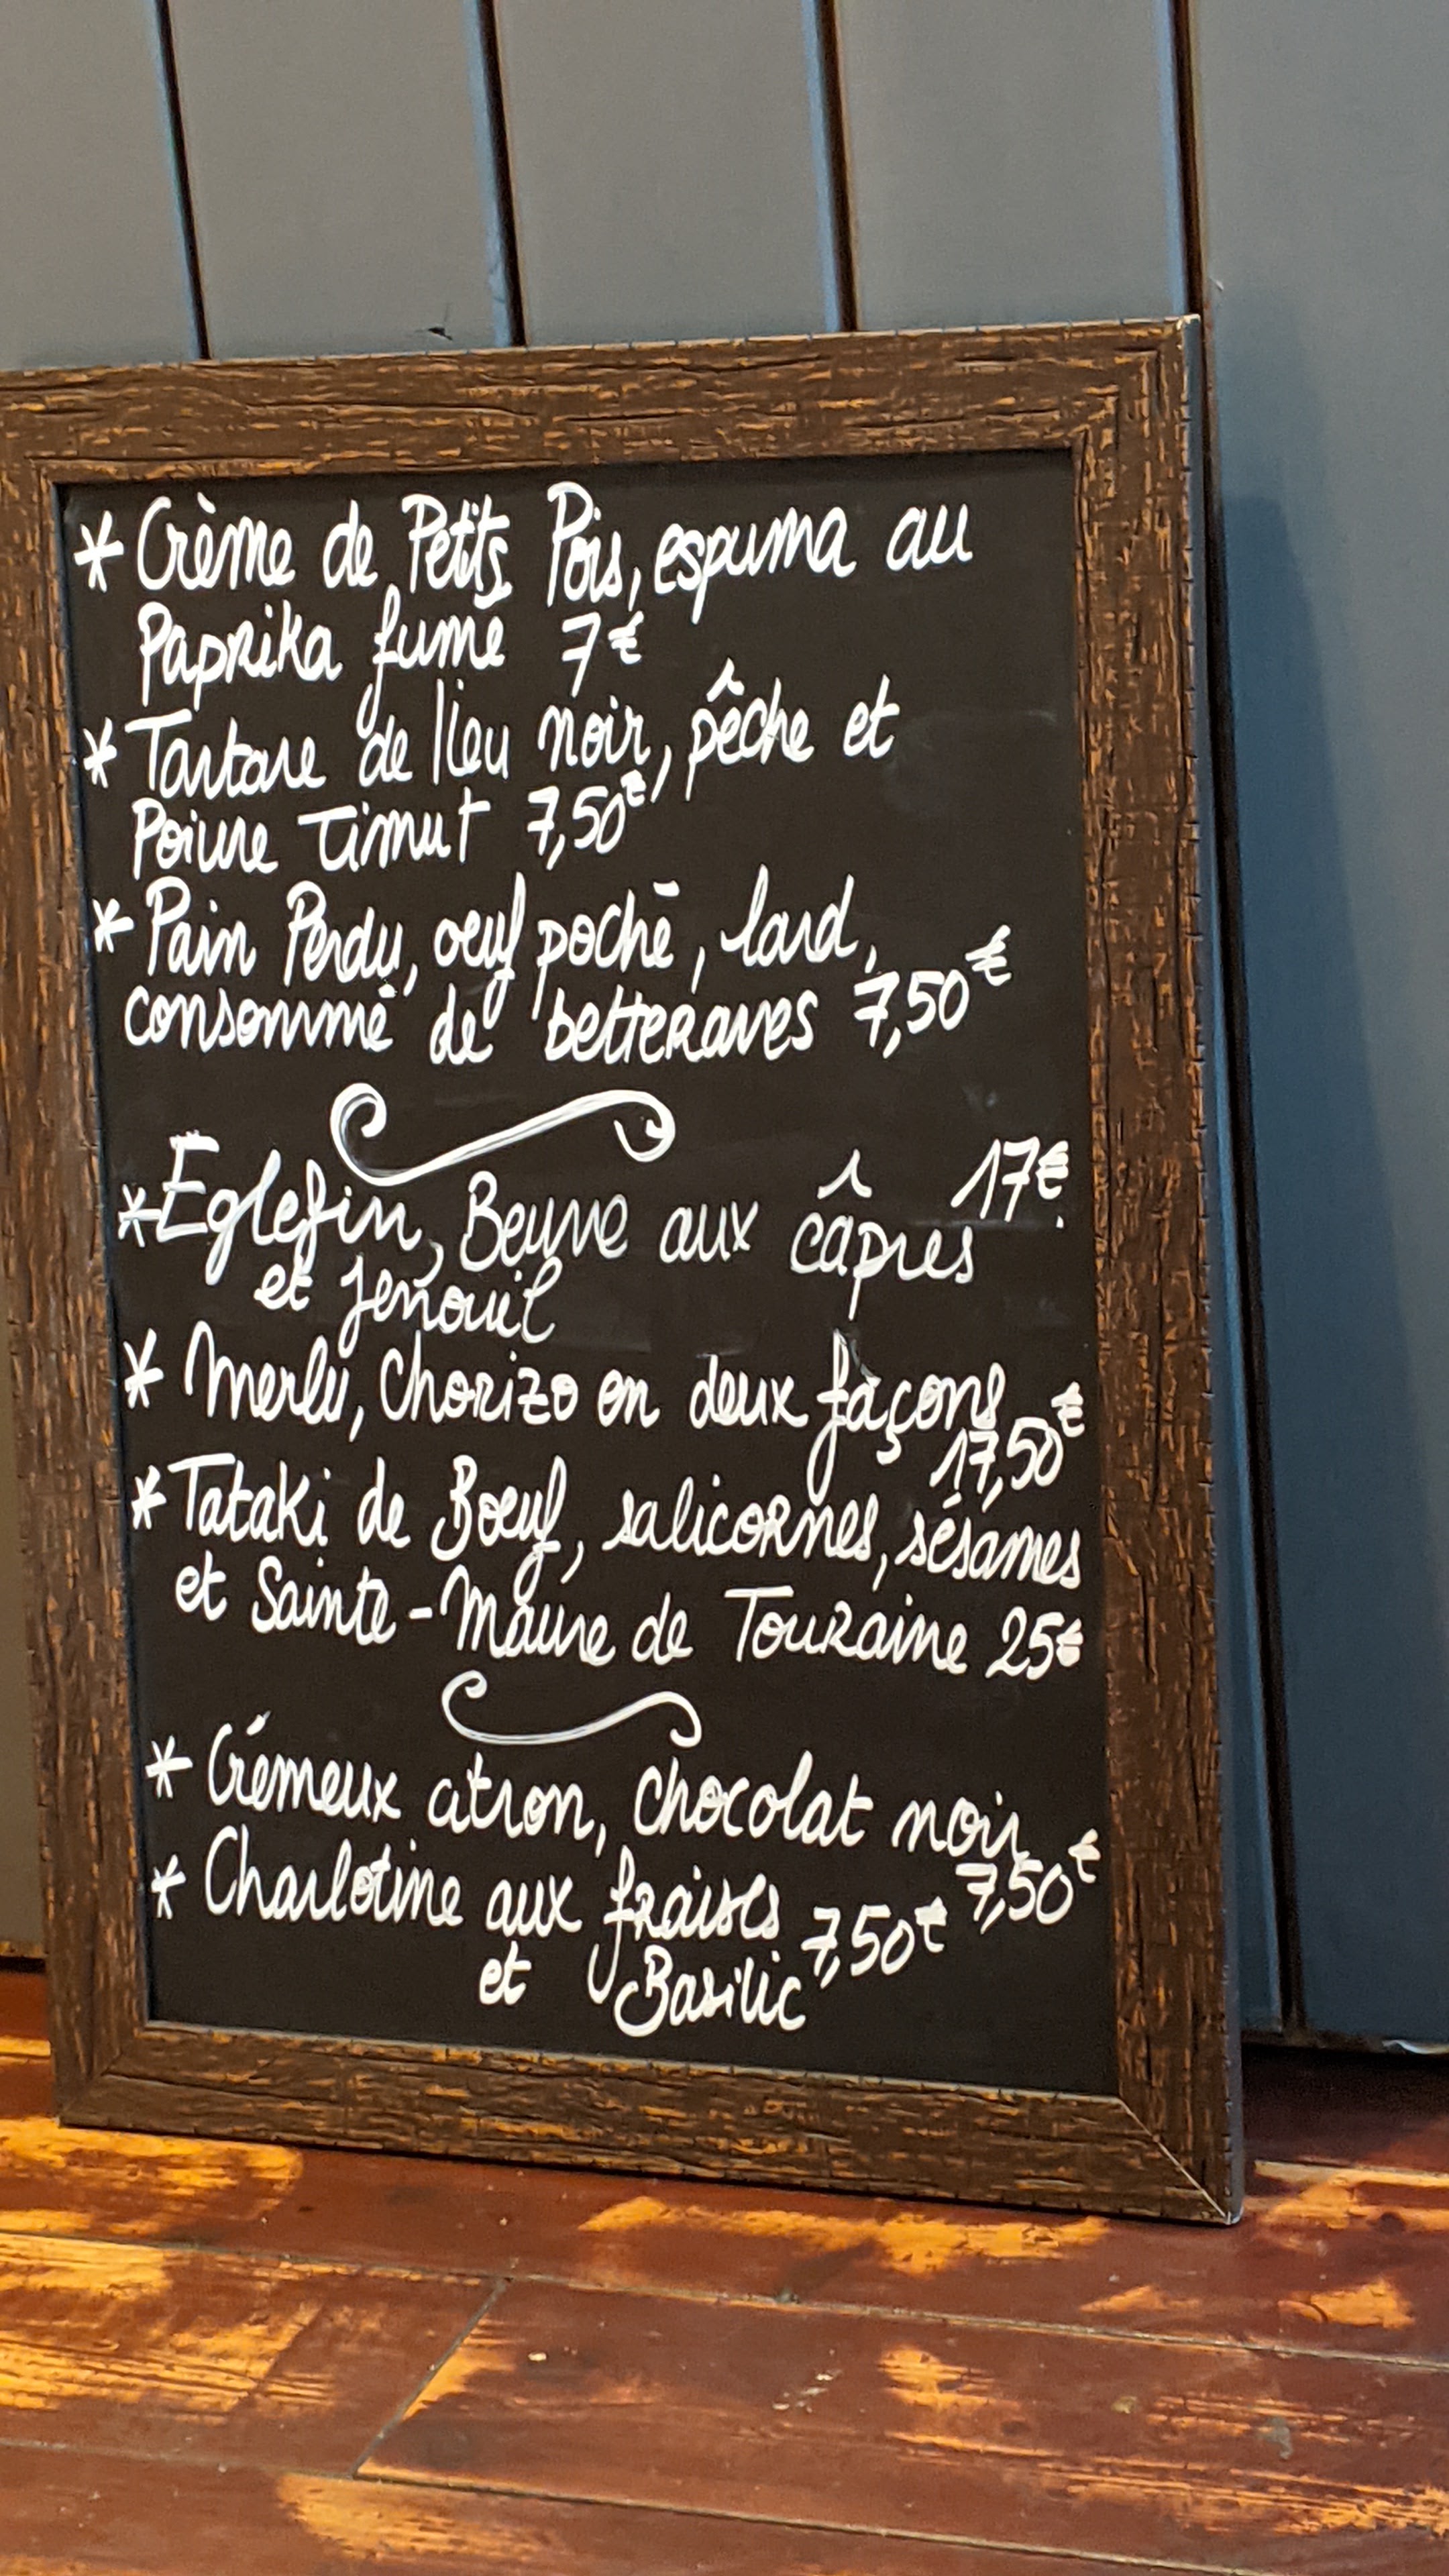 * Crème de Petits Pois, espuma au
Paprika fumé 7€
* Tartare de lieu noir, pêche et
Poivre Timut 7,50€
* Pain Perdu, oeuf poché, lard,
consommé de betteraves 7,50€
* Eglefin, Beurre aux câpres 17€
et fenouil
* Merlu, Chorizo en deux façons
17,50€
* Tataki de Boeuf, salicornes, sésames
et Sainte-Maure de Touraine 25€
* Crémeux citron, chocolat noir
7,50€
* Charlotine aux fraises 7,50€
et Basilic